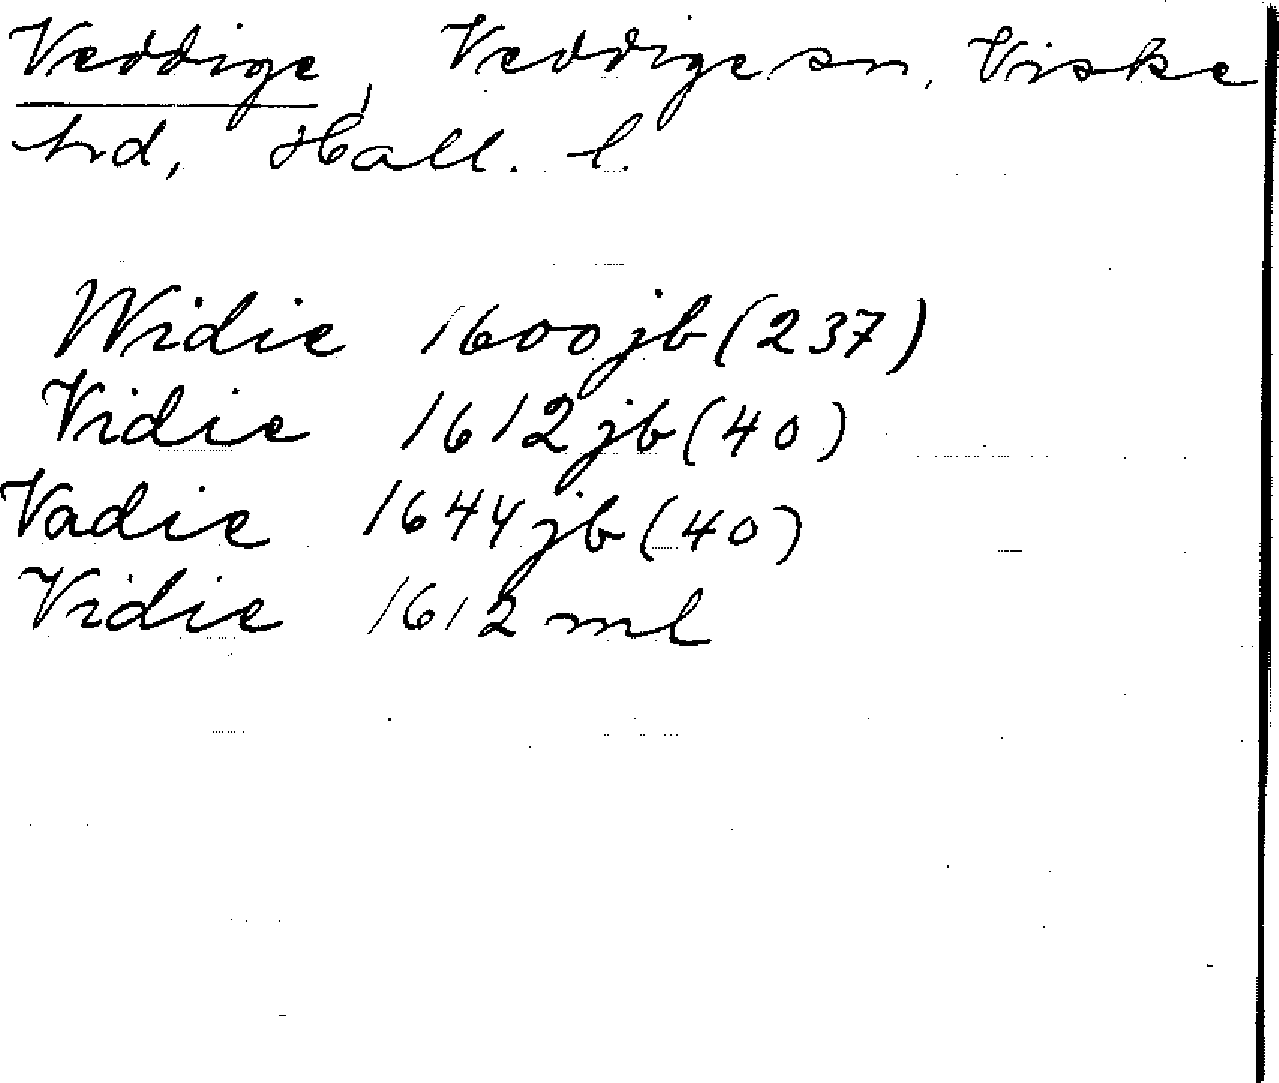 Veddige, Veddige sn, Viske
hrd, Hall. l.
Widie 1600 jb (237)
Vidie 1612 jb (40)
Vadie 1644 jb (40)
Vidie 1612 ml